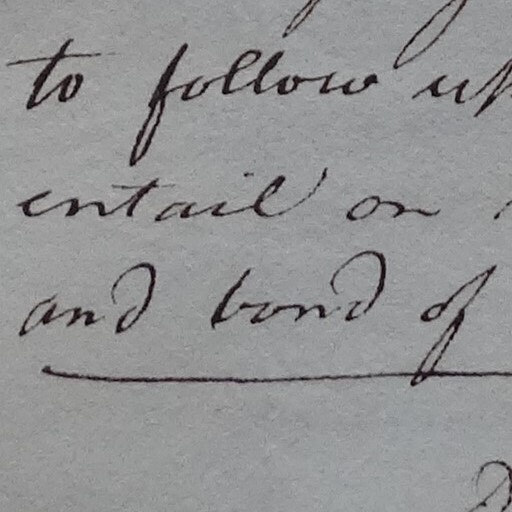 to follow up
entail on
and bond of